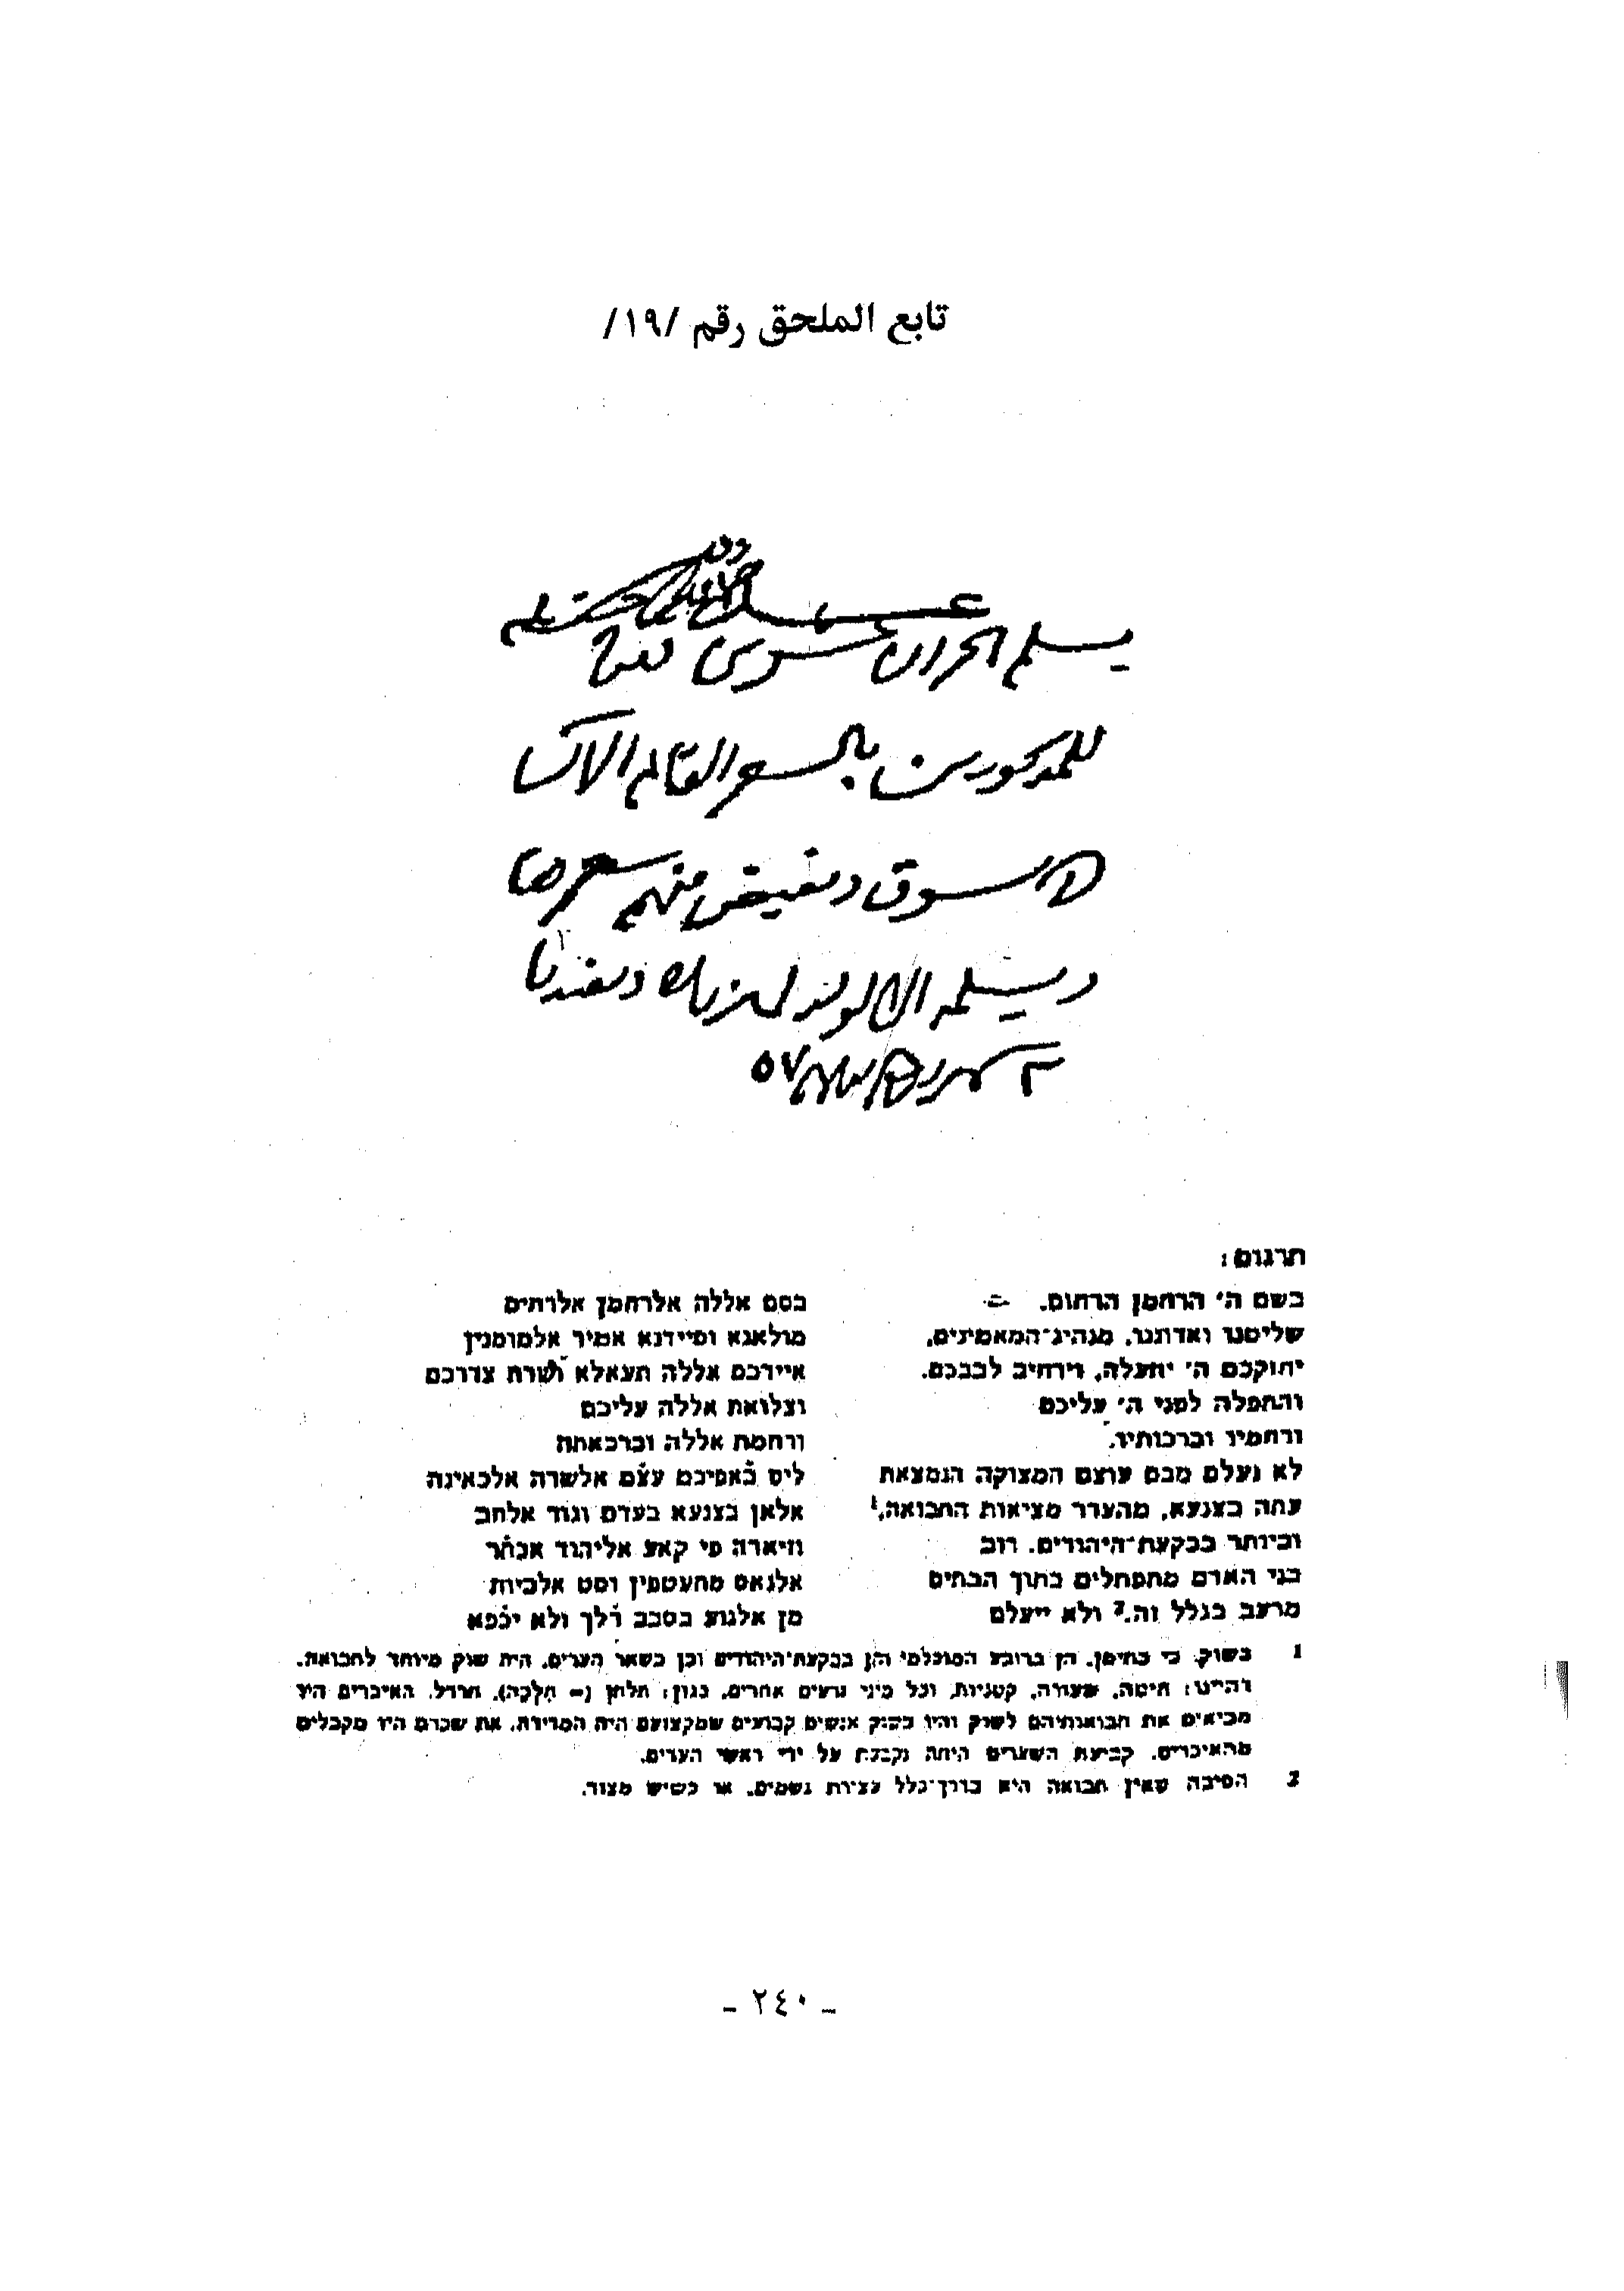 تابع الملحق رقم /١٩/
للمذكورين بالسعر القائم الان
السوق منهم سعرها
תרגום:
בשם ה' הרחמן הרחום.
שליטנו ואדוננו, מנהיג־המאמינים,
יחזקכם ה' יתעלה, וירחיב לבבכם.
והתפלה לפני ה' עליכם
ורחמיו וברכותיו.
לא נעלם מכם עוצם המצוקה הנמצאת
עתה בצנעא, מהעדר מציאות התבואה,¹
וביותר בבקעת־היהודים. רוב
בני האדם מתעטפים בתוך הבתים
מרעב בגלל זה.² ולא ייעלם
בסם אללה אלרחמן אלרחים
מולאנא וסיידנא אמיר אלמומנין
איידכם אללה תעאלא ושרח צדרכם
וצלואת אללה עליכם
ורחמת אללה וברכאתה
ליס באפיכם עצ'ם אלשדה אלכאינה
אלאן בצנעא בעדם וגוד אלחב
וזיאדה פי קאע אליהוד אכת'ר
אלנאס מתעטפין וסט אלביות
מן אלגוע בסבב ד'לך ולא יכ'פא
1 בשוק, כי בתימן, הן ברובע המוסלמי והן בבקעת־היהודים וכן בשאר הערים, היה שוק מיוחד לתבואה,
דהיינו: חיטה, שעורה, קטניות, וכל מיני זרעים אחרים, כגון: תלתן (= חלבה), חרדל. האיכרים היו
מביאים את תבואותיהם לשוק והיו בשוק אנשים קבועים שמקצועם היה המדידה, את שכרם היו מקבלים
מהאיכרים. קביעת השערים היתה נקבעת על ידי ראשי הערים.
2 הסיבה שאין תבואה היא בדרך־כלל עצירת גשמים, או כשיש מצור.
- ٢٤٠ -